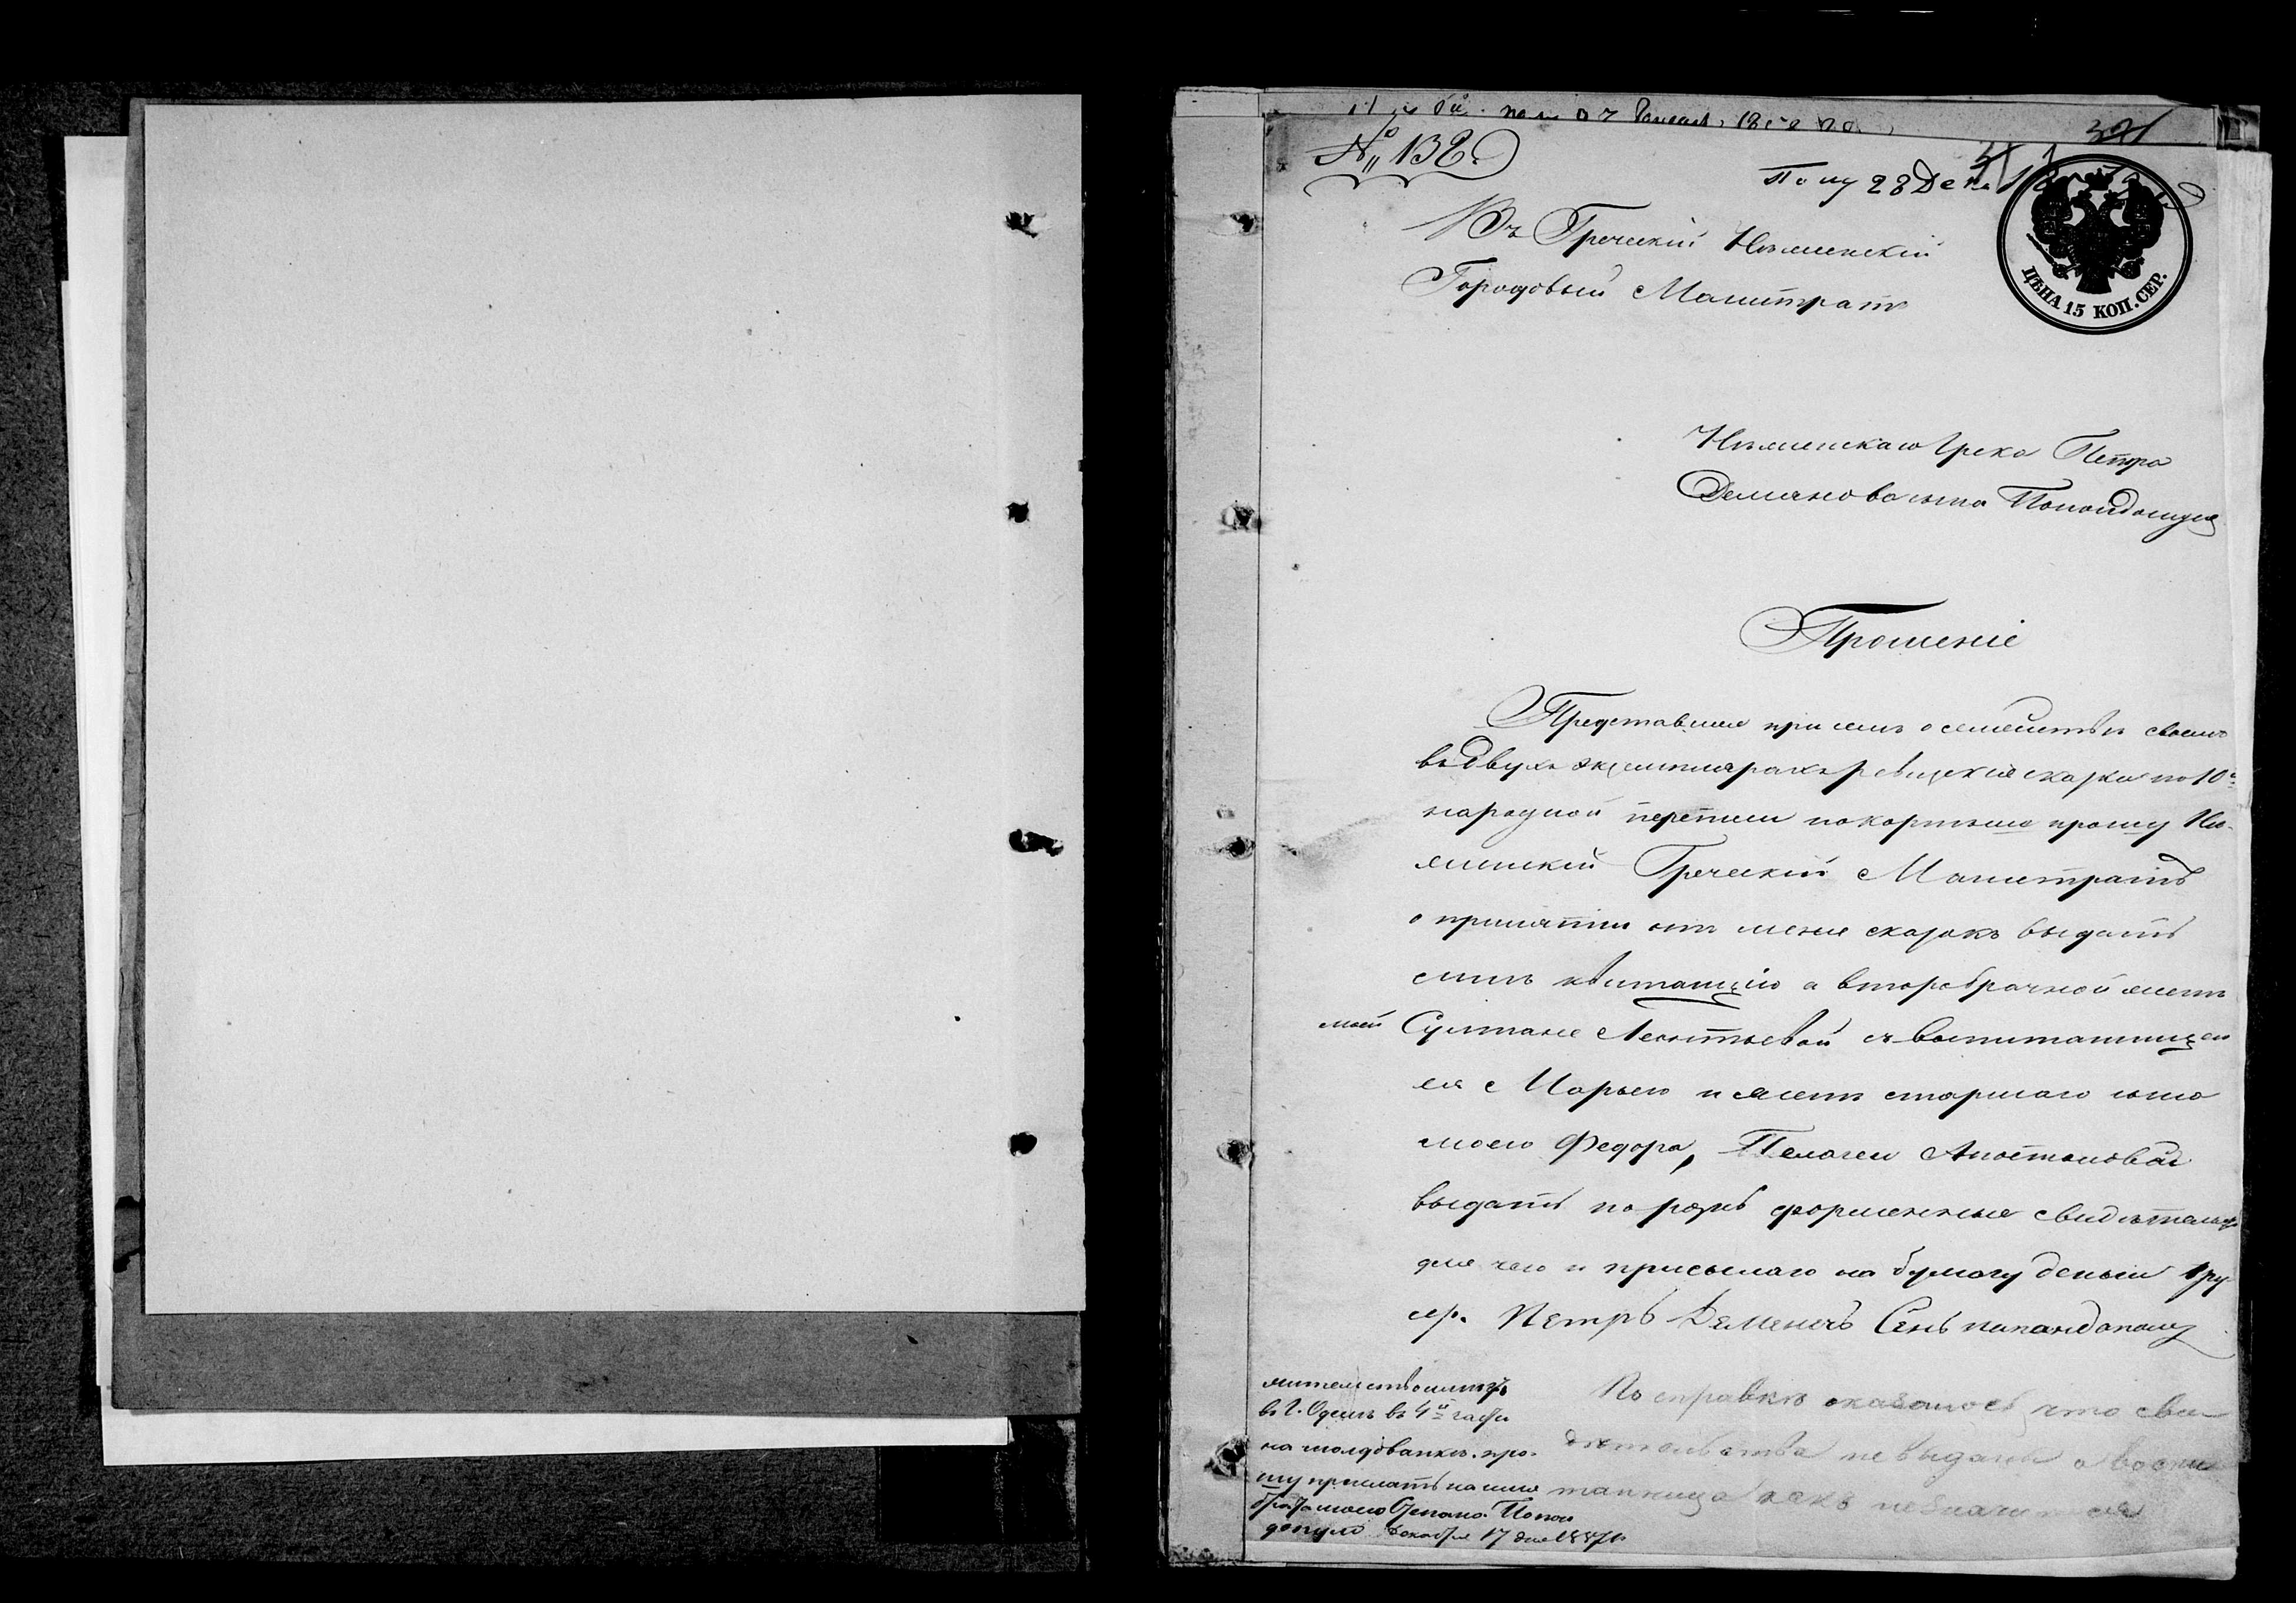 № 132.
Полу 28 Дека
ЦѢНА 15 КОП. СЕР.
Въ Греческій Нѣжинскій
Городовый Магистратъ
Нѣжинскаго Грека Петра
Демьянова сына Попандопула
Прошеніе
Представляя при семъ о семействѣ своемъ
въ двухъ экземплярахъ ревизскія сказки по 10й
народной переписи покорнѣйше прошу Нѣ-
жинскій Греческій Магистратъ
о принятіи отъ меня сказокъ выдать
мнѣ квитанцію а второбрачной женѣ
моей Султане Леонтьевой съ воспитанницею
ея с Марьею и женѣ старшаго сына
моего Федора, Пелагеи Апостоловой
выдать по розъ форменные свидѣтельст
для чего и присылаю на бумагу деньги 1 ру
сер. Петръ Деменовъ Сенъ папандопулу
жительство имѣю
въ г. Одесѣ въ 4й части
на молдованкѣ. про-
шу прислать на имя
брата моего Степана Попан
допуло Декабря 17 дня 1857 г.
По справкѣ оказалось что сви
дѣтельства не выданы а воспи
танница какъ не значится